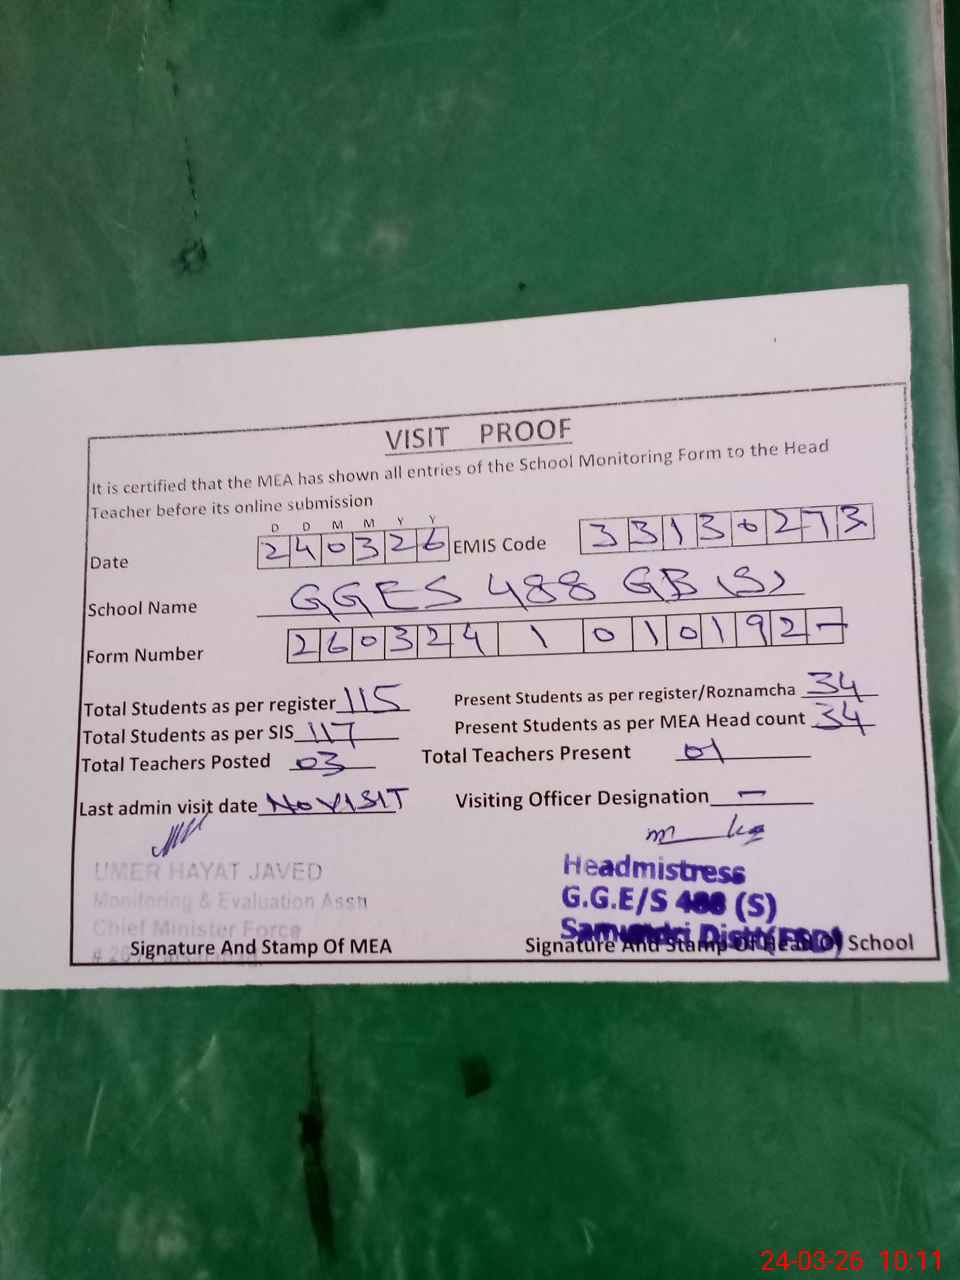 VISIT PROOF
It is certified that the MEA has shown all entries of the School Monitoring Form to the Head
Teacher before its online submission
D D M M Y Y
Date 240326 EMIS Code 33130273
School Name GGES 488 GB (S)
Form Number 260324 1 010192-
Total Students as per register 115 Present Students as per register/Roznamcha 34
Total Students as per SIS 117 Present Students as per MEA Head count 34
Total Teachers Posted 03 Total Teachers Present 01
Last admin visit date NO VISIT Visiting Officer Designation -
UMER HAYAT JAVED Headmistress
Monitoring & Evaluation Asstt G.G.E/S 488 (S)
Chief Minister Force Samundri Distt(FSD)
Signature And Stamp Of MEA Signature And Stamp Of Head Of School
24-03-26 10:11